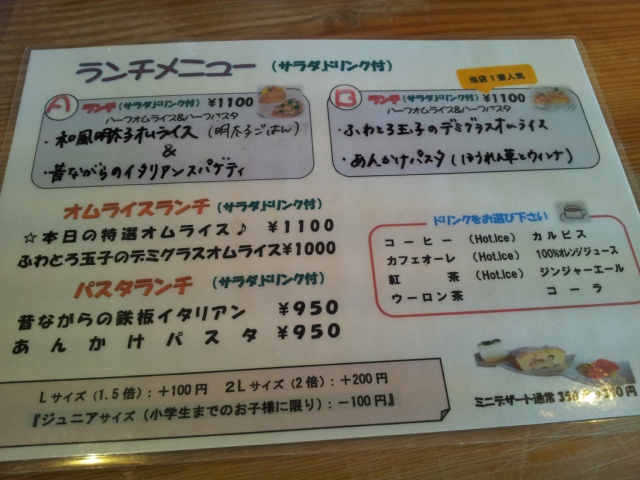 ランチメニュー (サラダ,ドリンク付)
A ランチ (サラダ,ドリンク付) ¥1100
ハーフオムライス&ハーフパスタ
・和風明太子オムライス (明太子ごはん)
&
・昔ながらのイタリアンスパゲティ
当店1番人気
B ランチ (サラダ,ドリンク付) ¥1100
ハーフオムライス&ハーフパスタ
・ふわとろ玉子のデミグラスオムライス
・あんかけパスタ (ほうれん草とウィンナ)
オムライスランチ (サラダ,ドリンク付)
☆本日の特選オムライス♪ ¥1100
ふわとろ玉子のデミグラスオムライス¥1000
パスタランチ (サラダ,ドリンク付)
昔ながらの鉄板イタリアン ¥950
あんかけパスタ ¥950
ドリンクをお選び下さい
コーヒー (Hot.Ice) カルピス
カフェオーレ (Hot.Ice) 100%オレンジジュース
紅茶 (Hot.Ice) ジンジャーエール
ウーロン茶 コーラ
Lサイズ(1.5倍):+100円 2Lサイズ(2倍):+200円
『ジュニアサイズ(小学生までのお子様に限り):-100円』
ミニデザート通常